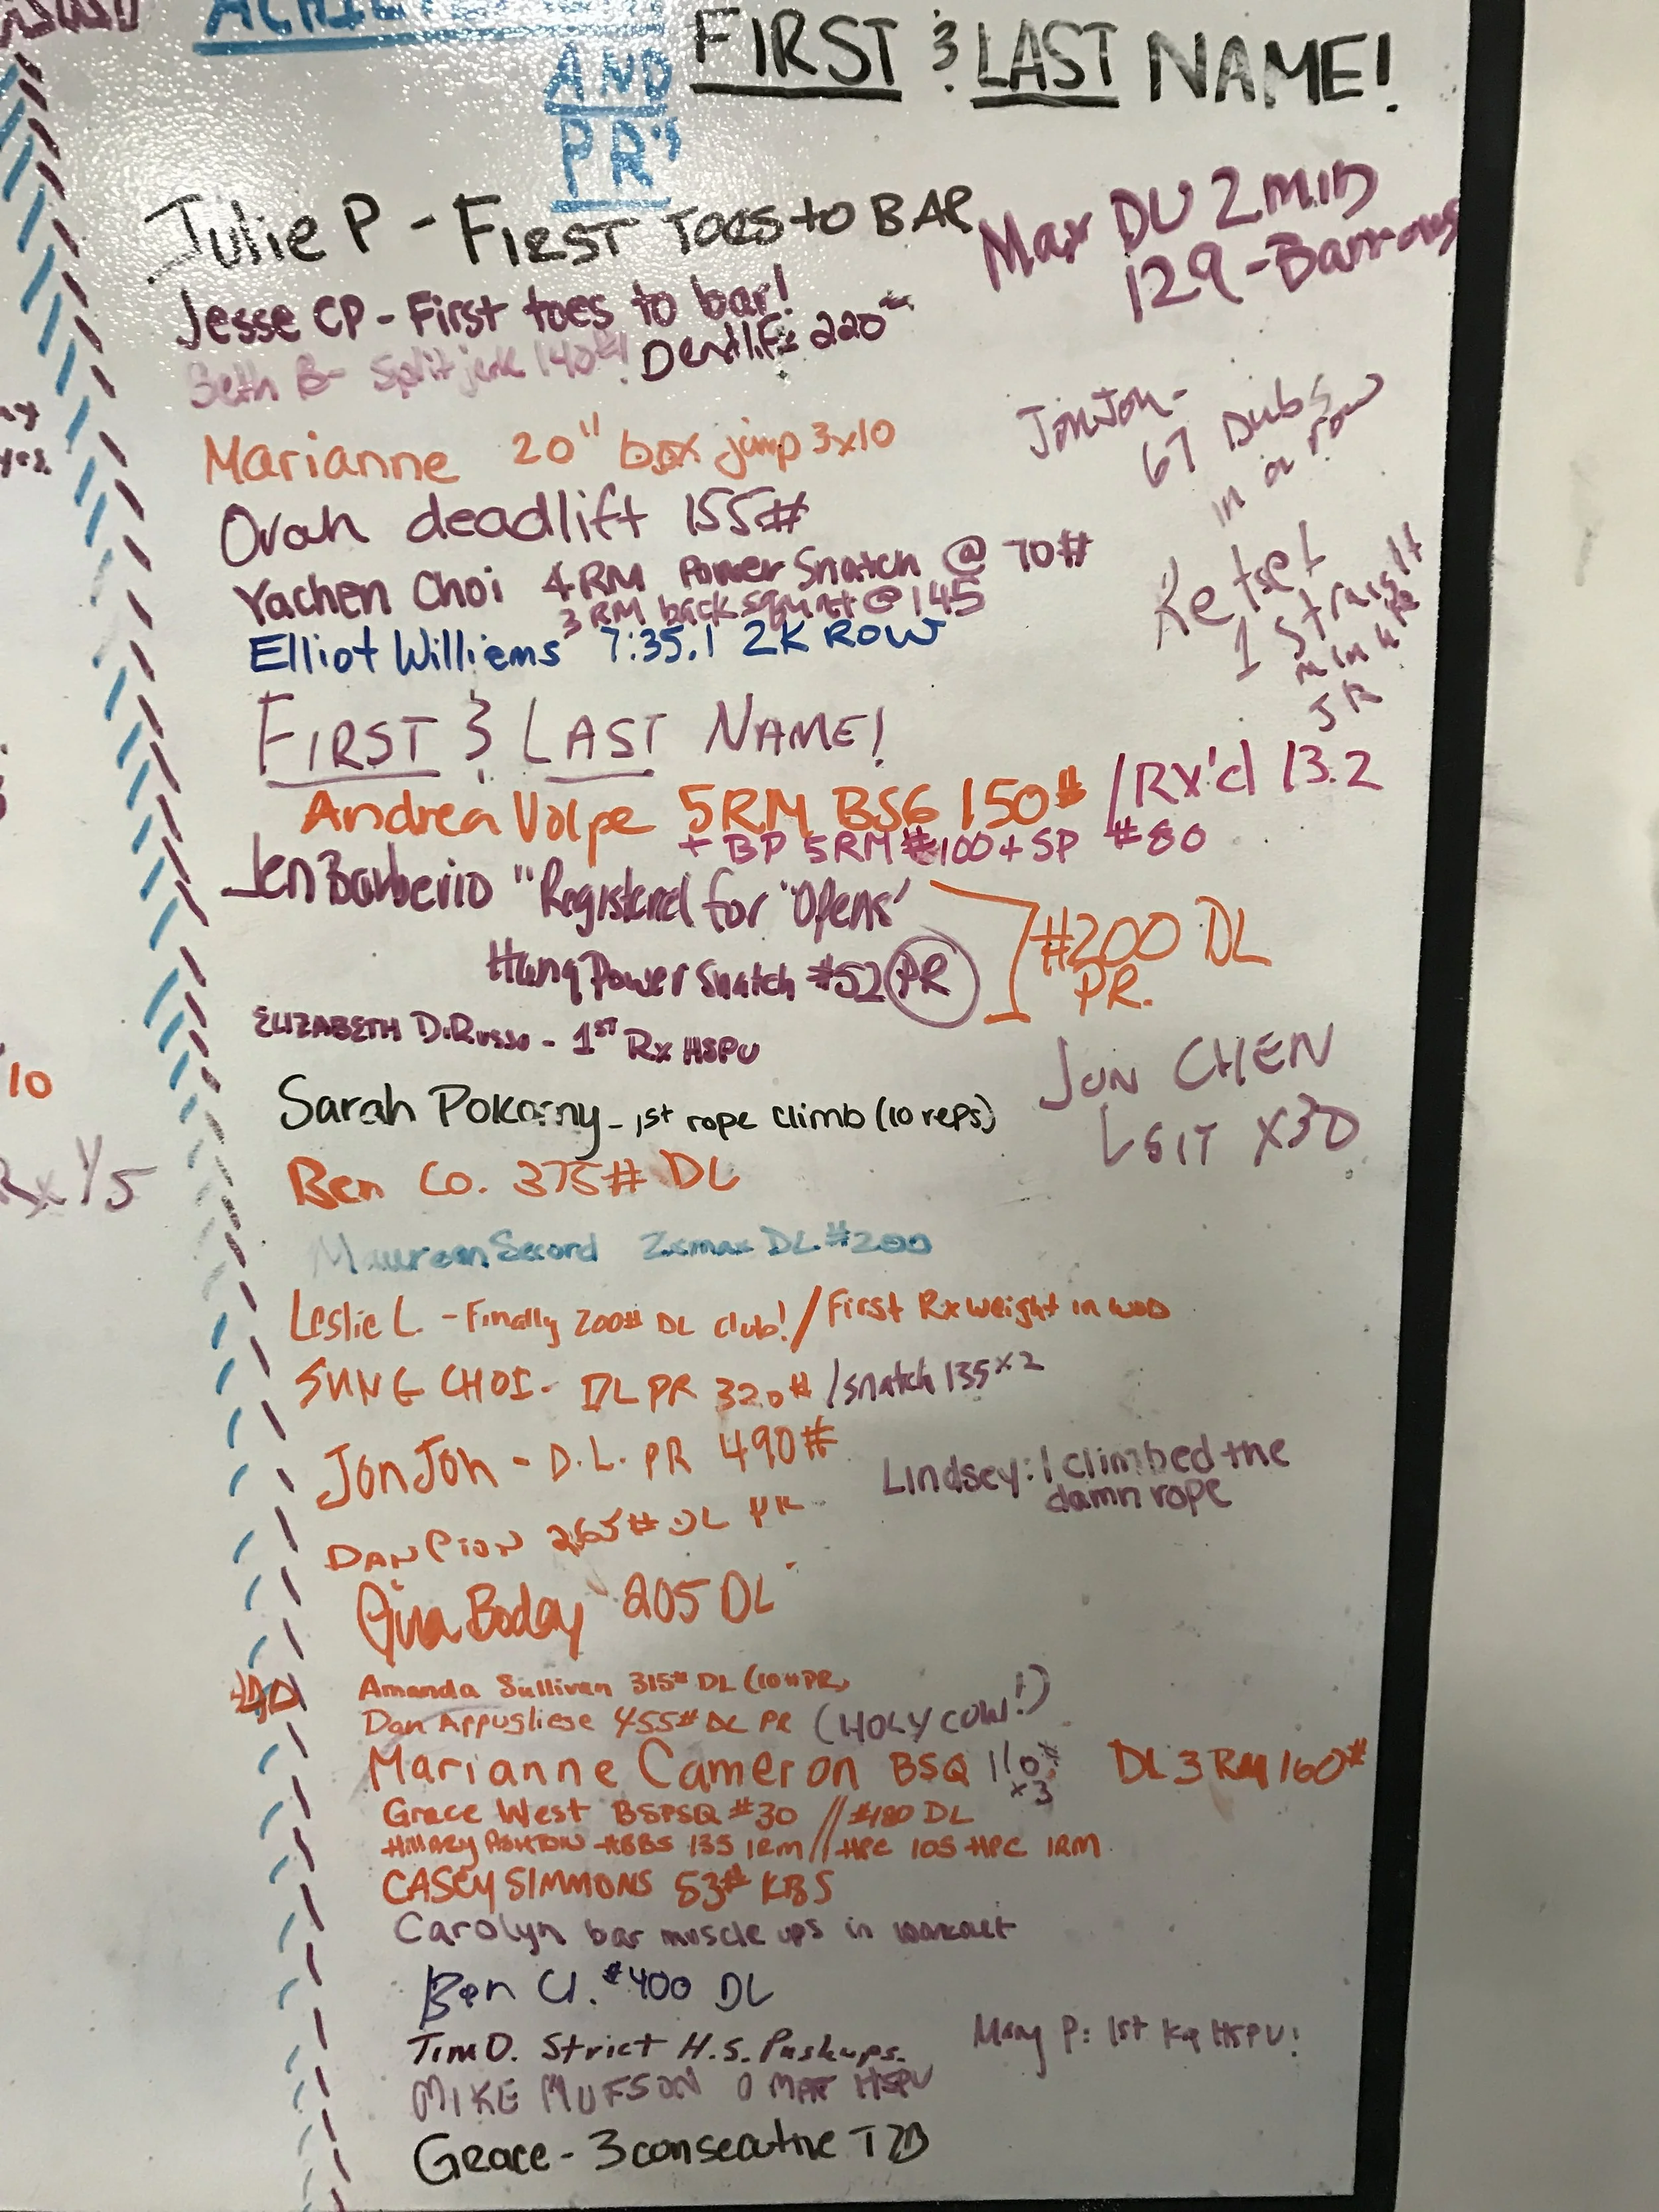 FIRST & LAST NAME!
AND
PR's
Julie P - FIRST TOES to BAR
Max DU 2 min
129 - Barrows
Jesse CP - First toes to bar!
Beth B- Split jerk 140#! Deadlift: 220#
JonJon-
67 Dubs
in a row
Marianne 20" box jump 3x10
Orah deadlift 155#
Yachen Choi 4RM Power Snatch @ 70#
3 RM back squat @ 145
Ketset
1 straight
minute
JR
Elliot Williams 7:35.1 2K ROW
FIRST & LAST NAME!
Andrea Volpe 5RM BSG 150# / RX'd 13.2
+ BP 5RM #100 + SP #80
Jen Barberio "Registered for "Opens"
Hang Power Snatch #52 PR
#200 DL
PR.
ELIZABETH DiRusso - 1ST Rx HSPU
JON CHEN
L SIT X30
Sarah Pokorny - 1st rope climb (10 reps)
Ben Co. 375# DL
Rx 1/5
10
Maureen Secord 2xmax DL #200
Leslie L. - Finally 200# DL club! / First Rx weight in WOD
SUNG CHOI - DL PR 320# / snatch 135x2
JonJon - D.L. PR 490#
Lindsey: I climbed the
damn rope
DAN Pion 265# DL PR
Gina Boday 205 DL
Amanda Sullivan 315# DL (10# PR)
Dan Appugliese 455# DL PR (HOLY COW!)
Marianne Cameron BSQ 110# x3 DL 3 RM 160#
Grace West BSPSQ #30 // #180 DL
Hillary Ashton HBBS 135 1RM // HPC 105 HPC 1RM
CASEY SIMMONS 53# KBS
Carolyn bar muscle ups in workout
Ben Cl. #400 DL
Tim D. Strict H.S. Pushups.
Mary P: 1st Kip HSPU!
MIKE MUFSON 0 MAT HSPU
Grace - 3 consecutive T2B